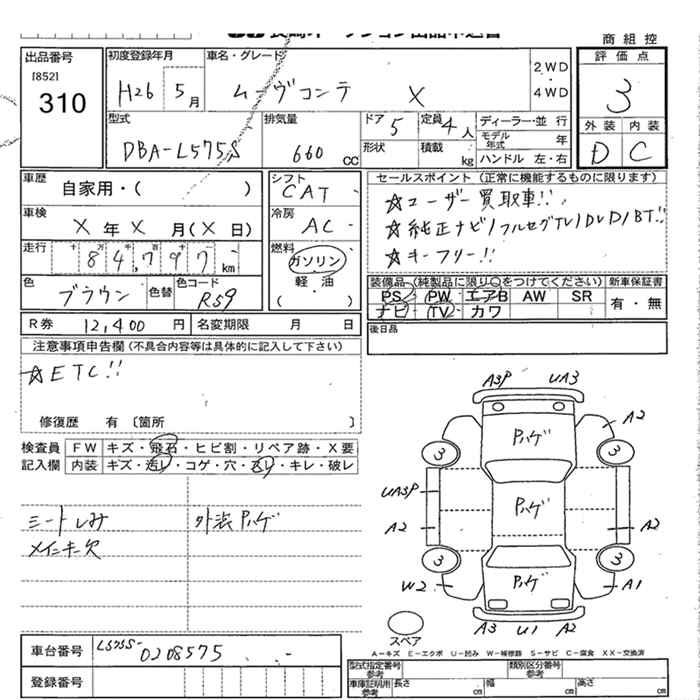 商組控
出品番号
[852]
310
初度登録年月
H26 5月
車名・グレード
ムーヴコンテ X
2WD
・
4WD
評価点
3
外装 内装
D C
型式
DBA-L575S
排気量
660 CC
ドア 5
定員 4人
形状
積載 kg
ディーラー・並行
モデル年式 年
ハンドル 左・右
車歴
自家用・( )
シフト
CAT
車検
X年X月(X日)
冷房
AC
走行
十万 万 千 百 十 一
84,797 km
燃料
ガソリン
軽・油
( )
色
ブラウン
色替
色コード
R59
セールスポイント (正常に機能するものに限ります)
☆ユーザー買取車!!
☆純正ナビ/フルセグTV/DVD/BT!!
☆キーフリー!!
装備品(純製品に限り○をつけてください)
新車保証書
PS PW エアB AW SR
ナビ TV カワ
有・無
R券 12,400円
名変期限 月 日
後日品
注意事項申告欄(不具合内容等は具体的に記入して下さい)
☆ETC!!
修復歴 有〔箇所 〕
検査員記入欄
FW キズ・飛石・ヒビ割・リペア跡・X要
内装 キズ・汚レ・コゲ・穴・スリ・キレ・破レ
シートしみ
メインキー欠
外装Pハゲ
A3P UA3
A2
Pハゲ
3 3
UA3P
Pハゲ
A2 A2
3 3
Pハゲ
W2 A1
A3 U1 A2
スペア
車台番号
L575S-0208575
登録番号
A-キズ E-エクボ U-凹み W-補修跡 S-サビ C-腐食 XX-交換済
型式指定番号
参考
類別区分番号
参考
車庫証明用
参考
長さ cm
幅 cm
高さ cm